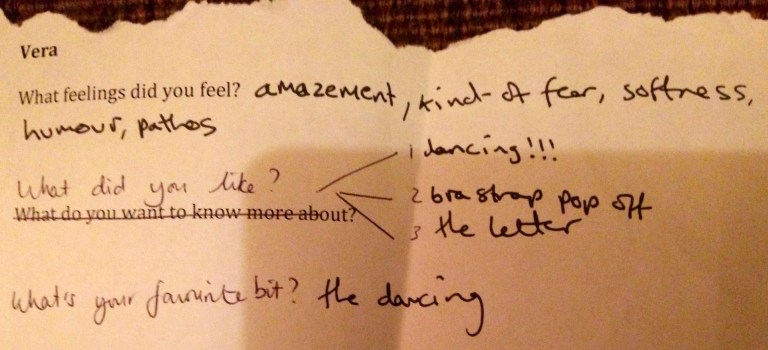 Vera
What feelings did you feel? amazement, kind of fear, softness,
humour, pathos
1 dancing!!!
What did you like?
2 bra strap pop off
What do you want to know more about?
3 the letter
What's your favourite bit? the dancing